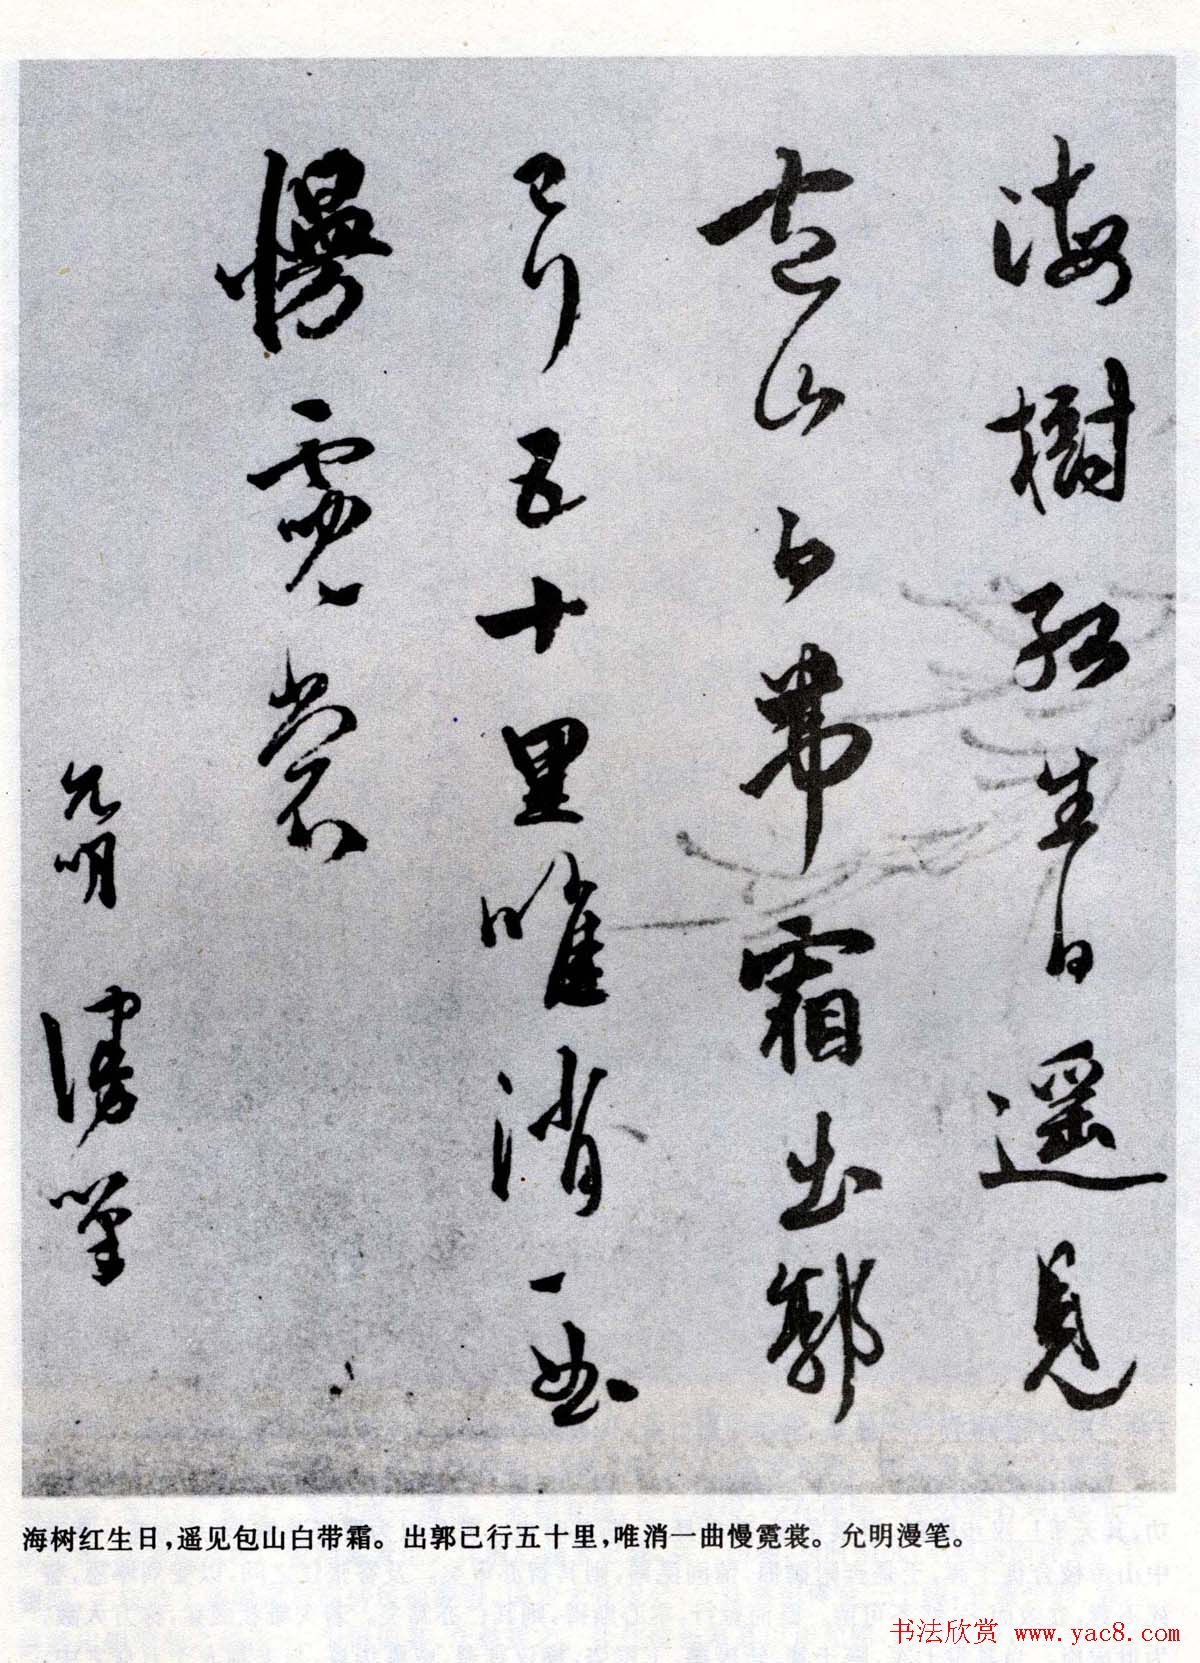 海樹紅生日遥見
包山白帶霜出郭
已行五十里唯消一曲
慢霓裳
允明漫筆
海树红生日，遥见包山白带霜。出郭已行五十里，唯消一曲慢霓裳。允明漫笔。
书法欣赏 www.yac8.com